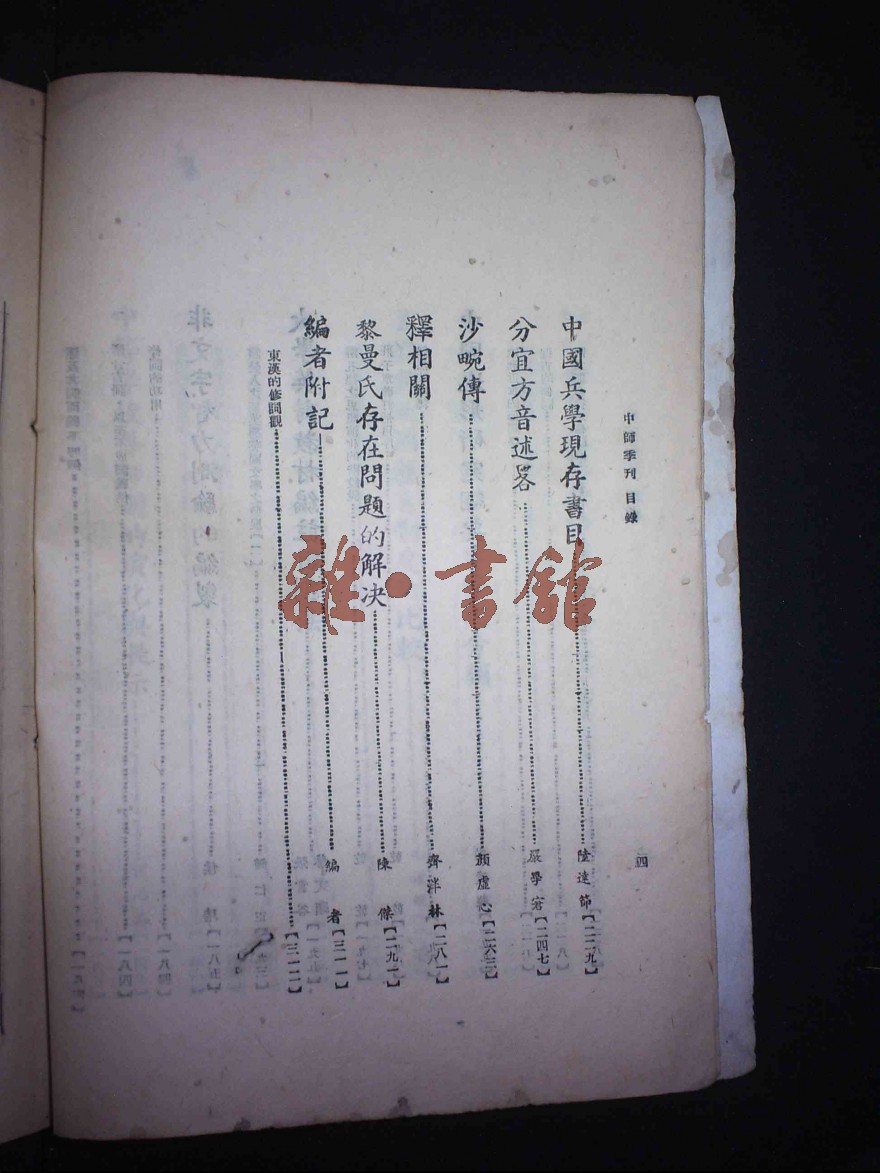 中師季刊 目錄
四
中國兵學現存書目……陸達節【二二九】
分宜方音述畧……嚴學宭【二四七】
沙畹傳……顏虛心【二六三】
釋相關……齊泮林【二八一】
黎曼氏存在問題的解決……陳傑【二九一】
編者附記……編者【三一一】
東漢的修詞觀……【三一二】
雜·書舘